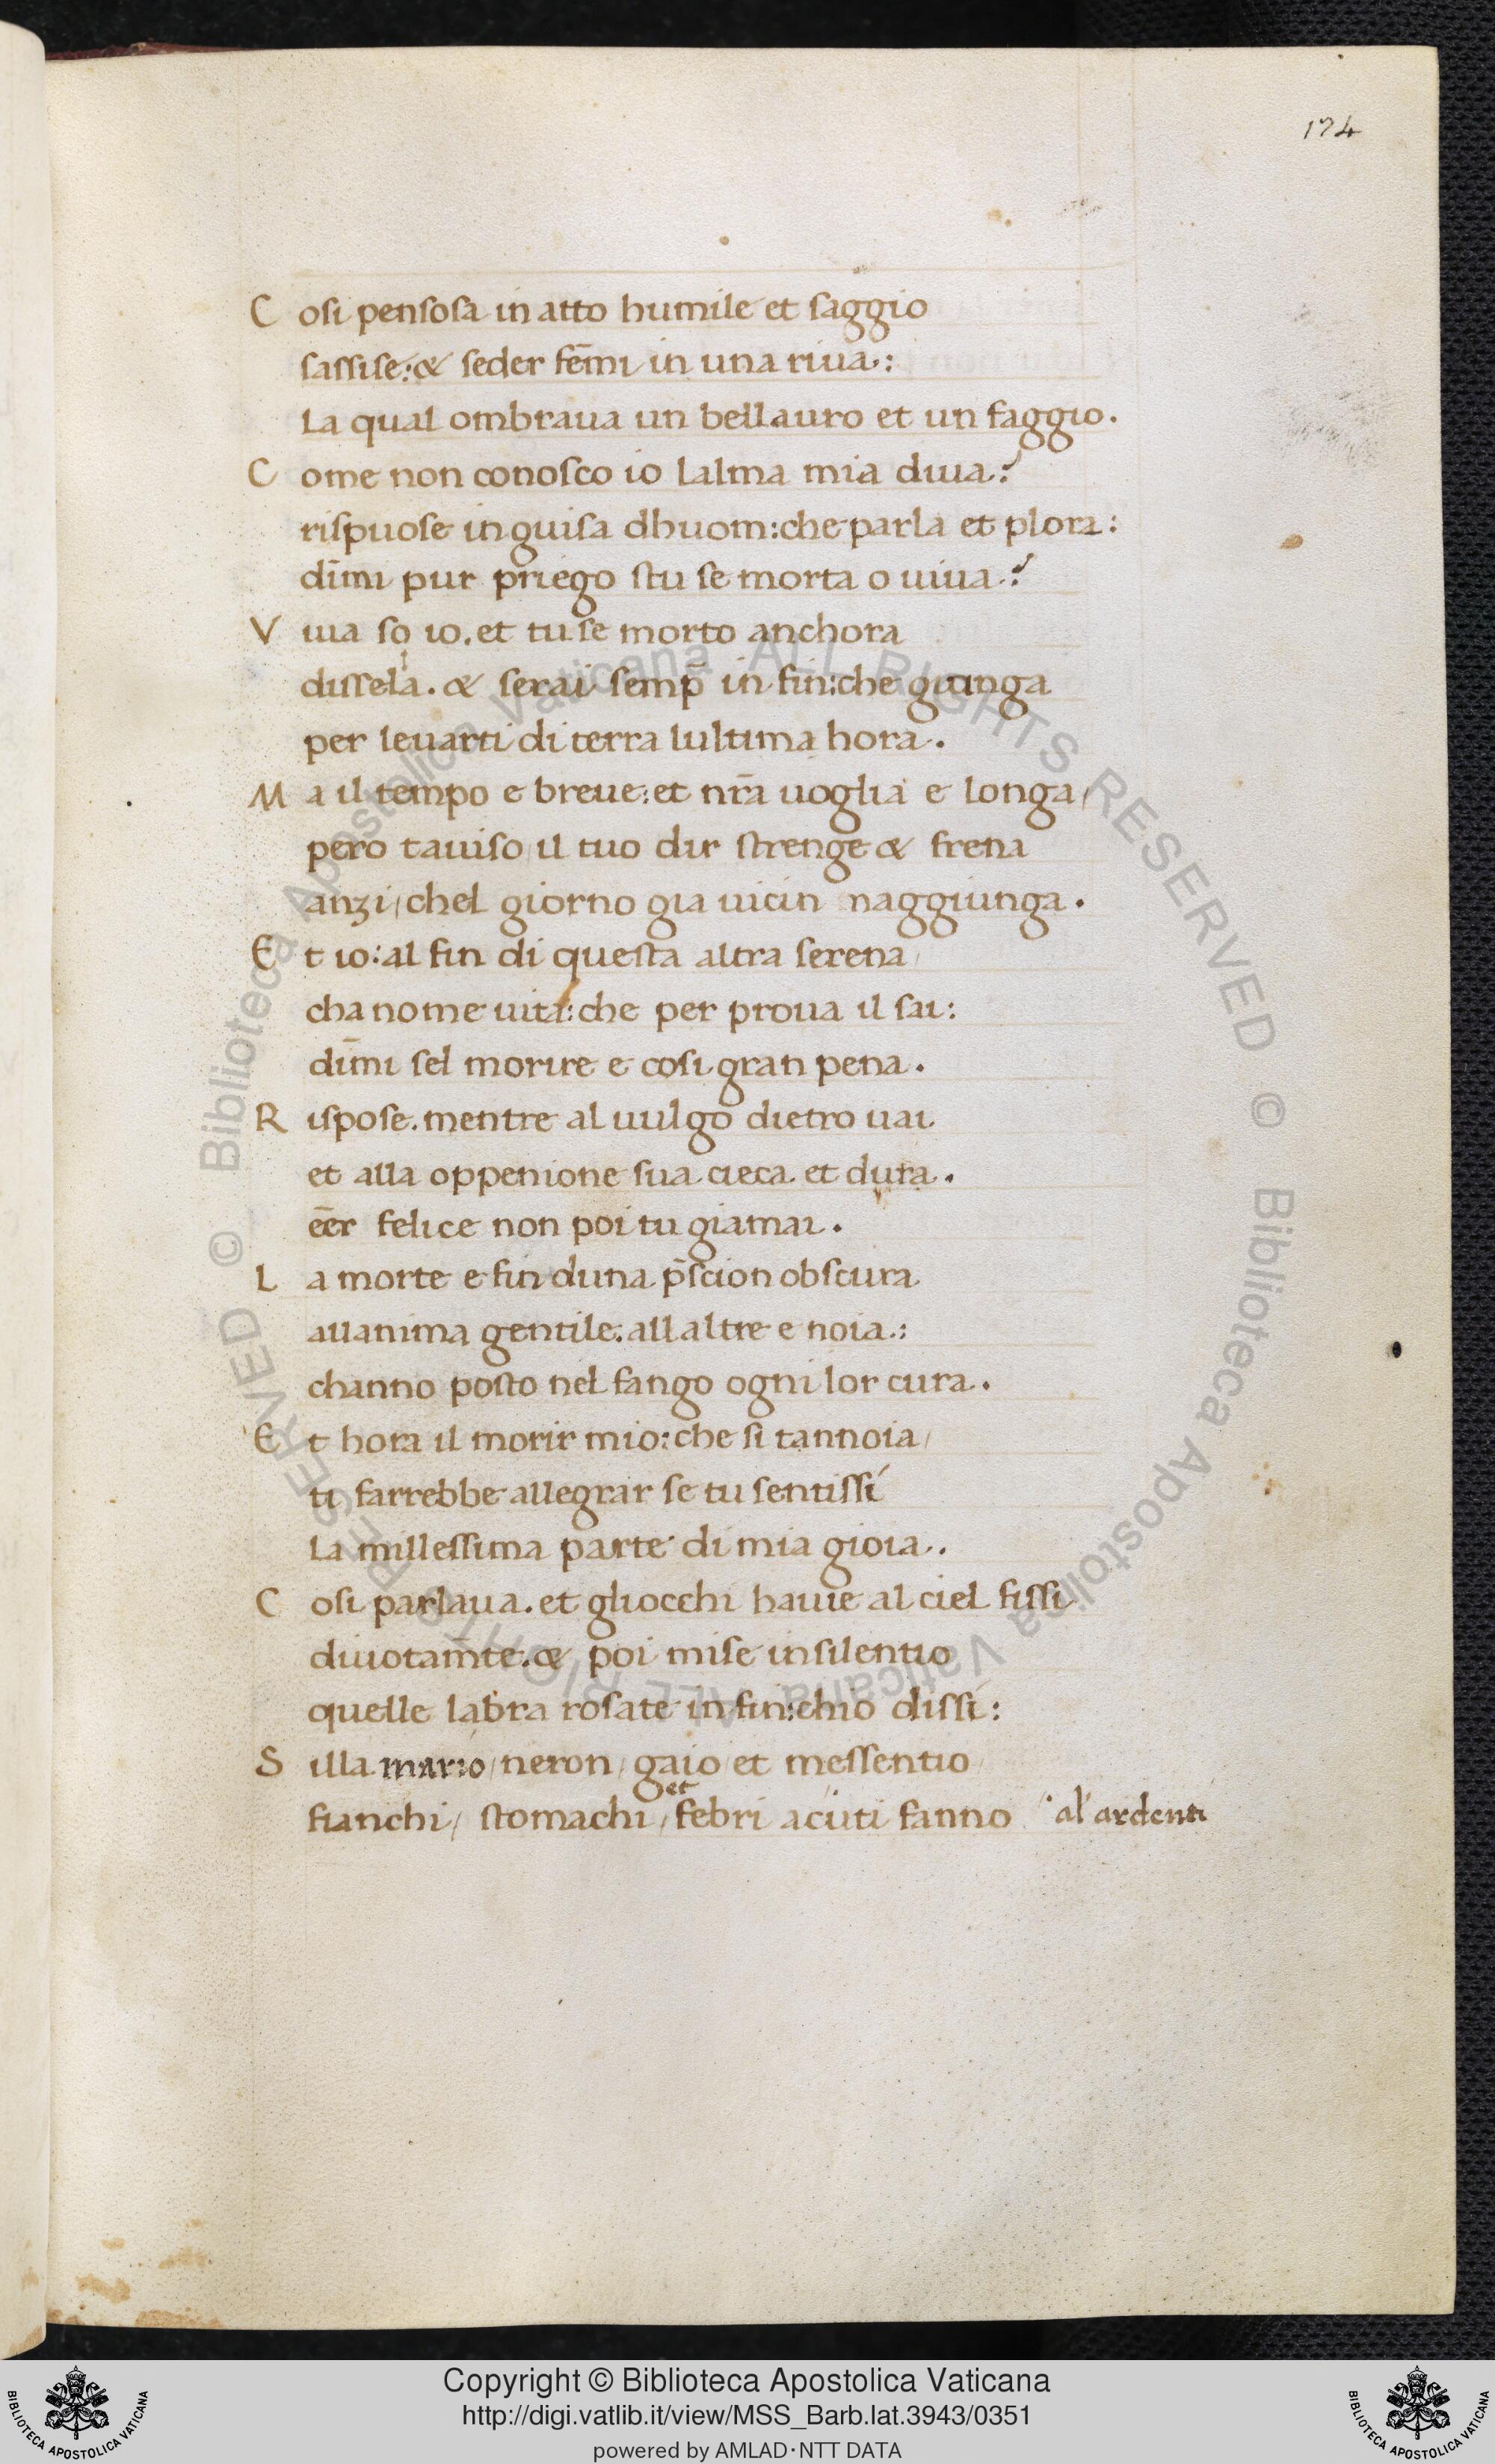 174
Cosi pensosa in atto humile et saggio
sassise:& seder fēmi in una riua.:
La qual ombraua un bellauro et un faggio.
Come non conosco io lalma mia diua.?
rispuose in guisa dhuom:che parla et plora:
dīmi pur priego stu se morta o uiua.?
Viua so io.et tu se morto anchora
dissela. & serai semp̄ in fin:che giunga
per leuarti di terra lultima hora.
Ma il tempo e breue:et nr̄a uoglia e longa/
pero tauiso il tuo dir strenge & frena
anzi/chel giorno gia uicin naggiunga.
Et io:al fin di questa altra serena/
cha nome uita:che per proua il sai:
dīmi sel morire e cosi gran pena.
Rispose.mentre al uulgo dietro uai
et alla oppenione sua cieca et dura.
eēr felice non poi tu giamai.
La morte e fin duna p̄scion obscura
allanima gentile:all altre e noia.:
channo posto nel fango ogni lor cura.
Et hora il morir mio:che si tannoia/
ti farrebbe allegrar se tu sentissi
La millessima parte di mia gioia.
Cosi parlaua.et gliocchi hauie al ciel fissi
diuotam̄te.& poi mise in silentio
quelle labra rosate in fin:chio dissi:
Silla mario/neron/gaio et messentio
fianchi/ stomachi/ et febri acuti fanno al' ardenti
Copyright © Biblioteca Apostolica Vaticana
http://digi.vatlib.it/view/MSS_Barb.lat.3943/0351
powered by AMLAD·NTT DATA
BIBLIOTECA APOSTOLICA VATICANA
BIBLIOTECA APOSTOLICA VATICANA
© Biblioteca Apostolica Vaticana ALL RIGHTS RESERVED
© Biblioteca Apostolica Vaticana ALL RIGHTS RESERVED